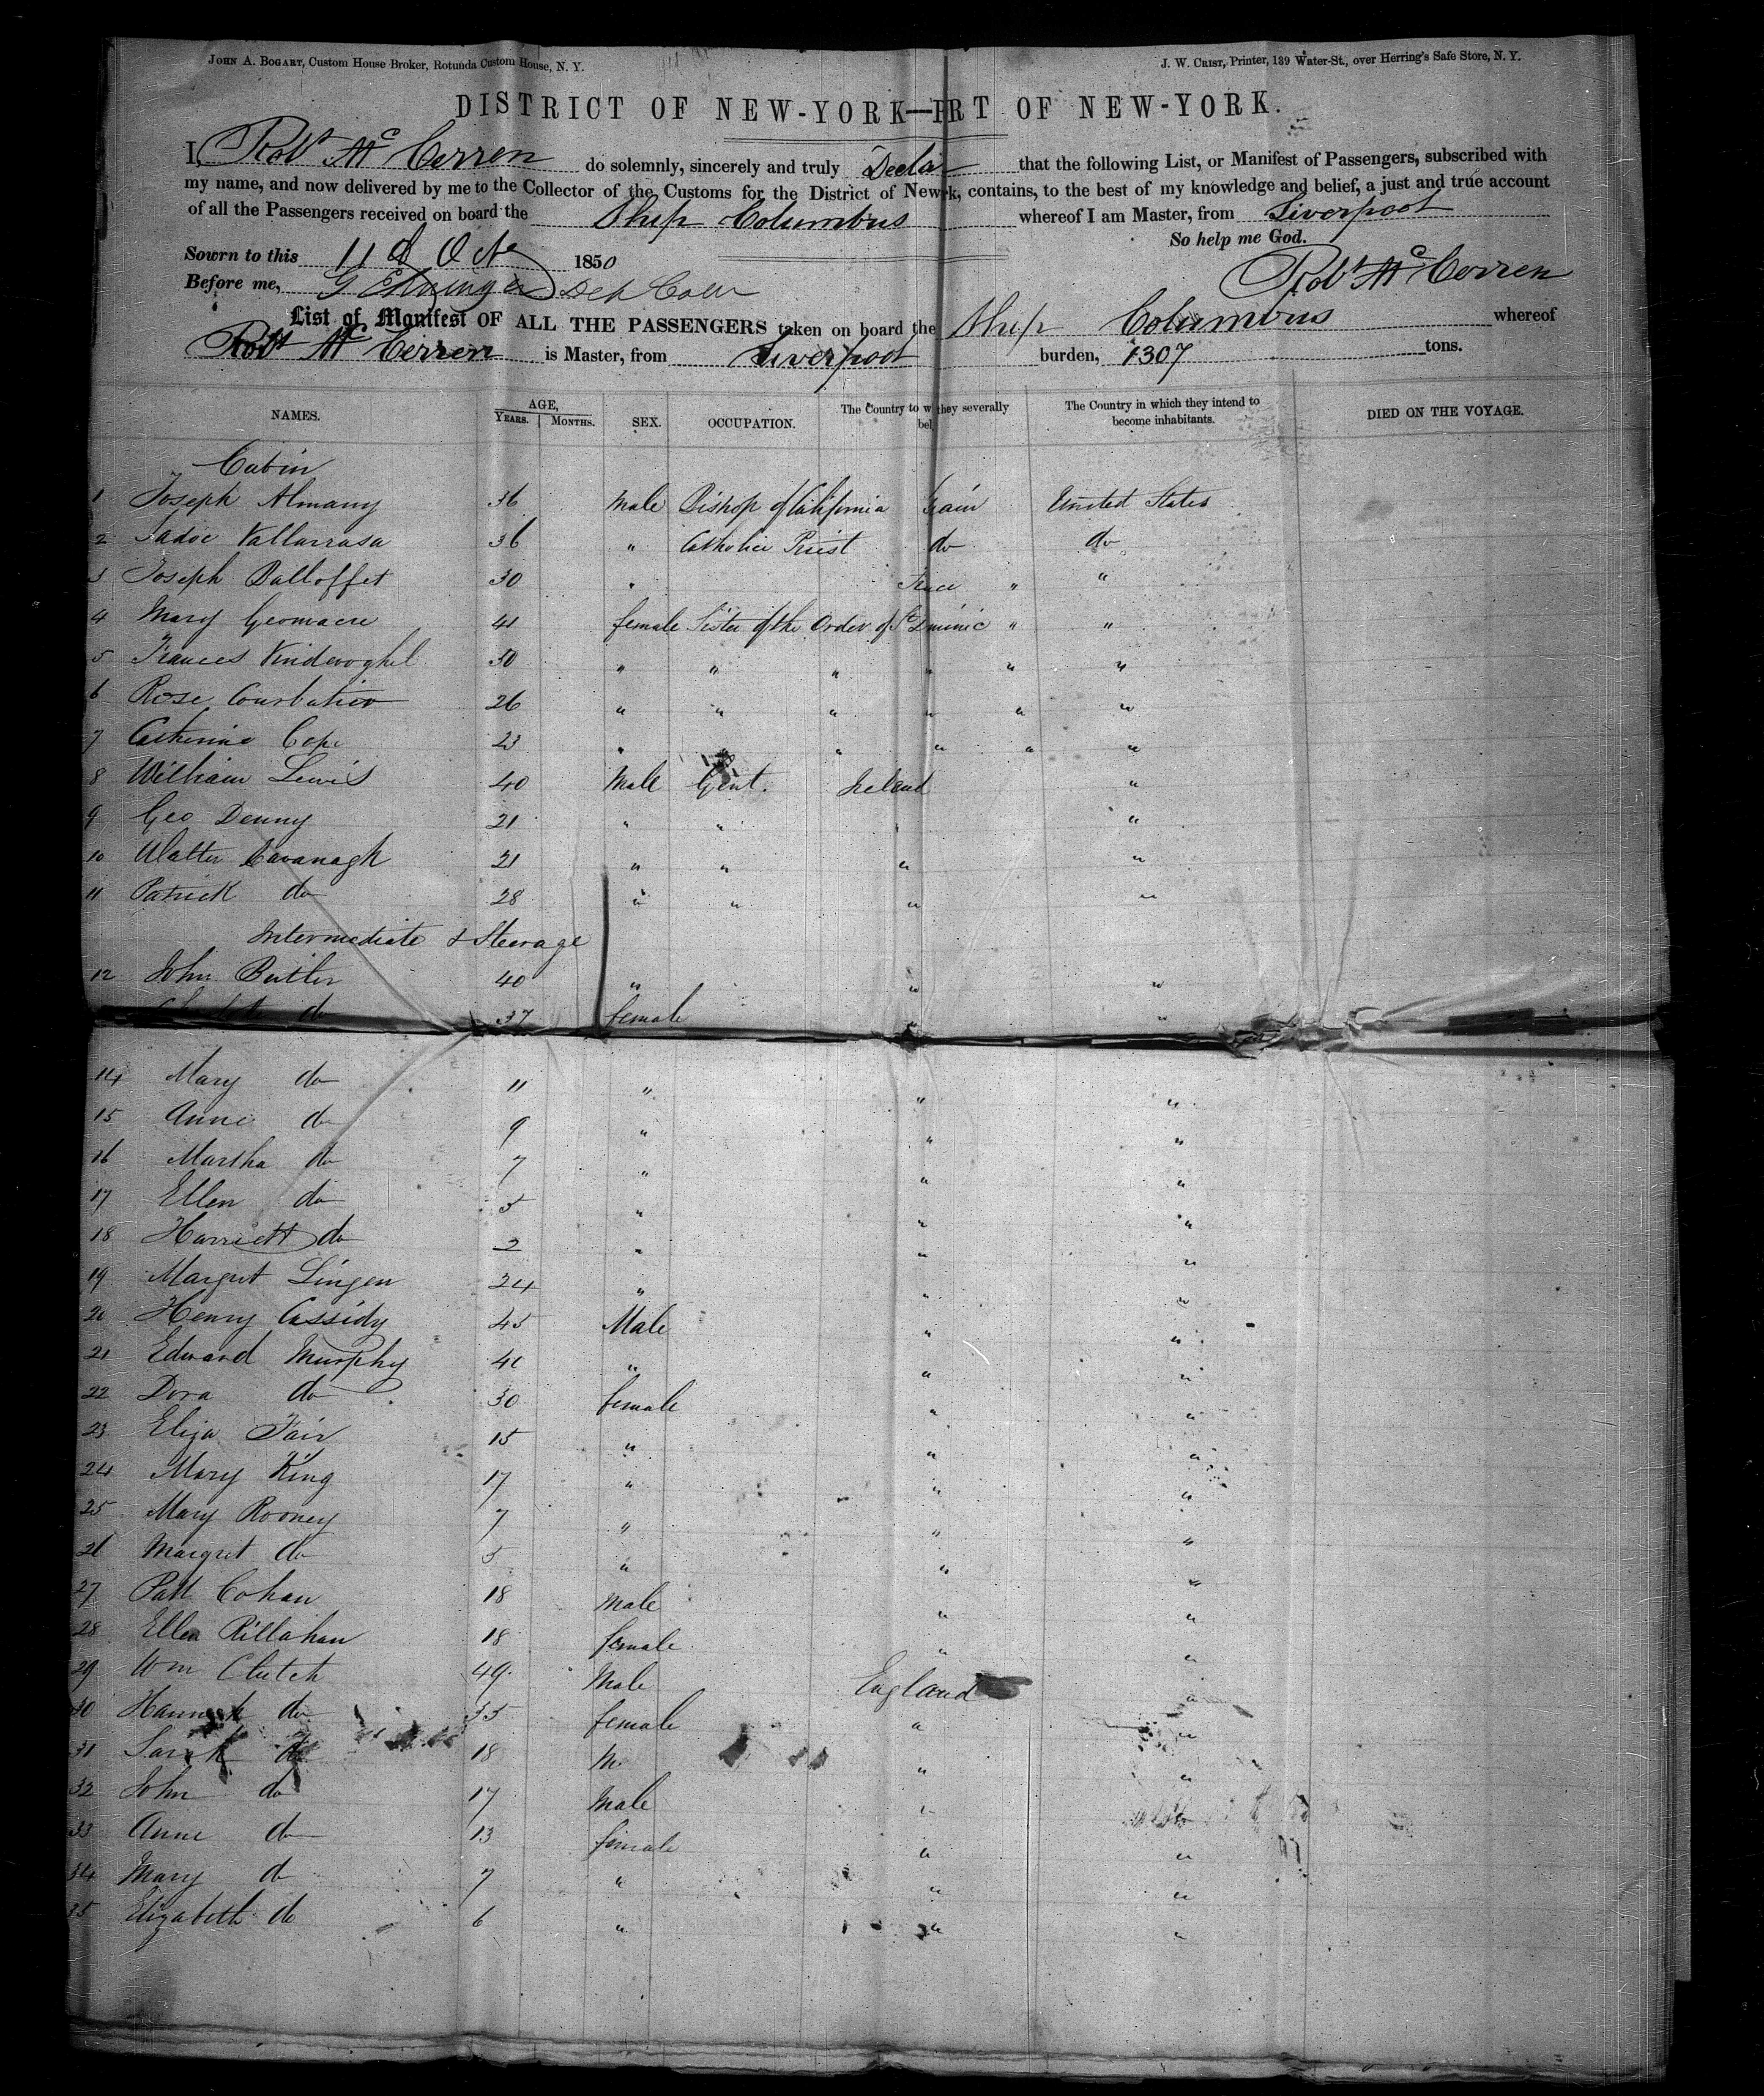 JOHN A. BOGART, Custom House Broker, Rotunda Custom House, N. Y.
J. W. CRIST, Printer, 139 Water-St., over Herring's Safe Store, N. Y.
DISTRICT OF NEW-YORK—PRT OF NEW-YORK.
I, Robt Mc Cerren do solemnly, sincerely and truly Decla that the following List, or Manifest of Passengers, subscribed with
my name, and now delivered by me to the Collector of the Customs for the District of Newrk, contains, to the best of my knowledge and belief, a just and true account
of all the Passengers received on board the Ship Columbus whereof I am Master, from Liverpool
So help me God.
Sowrn to this 11 Oct 1850
Robt Mc Cerren
Before me, Dep Coll
List of Manifest OF ALL THE PASSENGERS taken on board the Ship Columbus whereof
Robt Mc Cerren is Master, from Liverpool burden, 1307 tons.
NAMES. AGE, YEARS. MONTHS. SEX. OCCUPATION. The Country to w they severally bel The Country in which they intend to become inhabitants. DIED ON THE VOYAGE.
Cabin
1 Joseph Almany 36 Male Bishop of California Spain United States
2 Sadoc Vallarrasa 36 " Catholic Priest do do
3 Joseph Balloffet 30 " " "
4 Mary Geomaere 41 female Sister of the Order of St Dminic " "
5 Frances Vindevoghel 30 " " " " " "
6 Rose 26 " " " " " "
7 Catherine Cope 23 " " " " "
8 William Lewis 40 Male Gent. Ireland "
9 Geo Denny 21 " " " "
10 Walter Cavanagh 21 " " " "
11 Patrick do 28 " " " "
Intermediate & Steerage
12 John Butler 40 " " "
do 37 female " "
14 Mary do 11 " " "
15 Anne do 9 " " "
16 Martha do 7 " " "
17 Ellen do 5 " " "
18 Harriett do 2 " " "
19 Margret Lingen 24 " " "
20 Henry Cassidy 45 Male " "
21 Edward Murphy 40 " " "
22 Dora do 30 female " "
23 Eliza Fair 15 " " "
24 Mary King 17 " " "
25 Mary Rooney 7 " " "
26 Margret do 5 " " "
27 Patt Cohan 18 Male " "
28 Ellen Rillahan 18 female " "
29 Wm Clutch 49 Male England "
30 Hannah do 35 female " "
31 Sarah do 18 " "
32 John do 17 Male " "
33 Anne do 13 female " "
34 Mary do 7 " " "
35 Elizabeth do 6 " " "